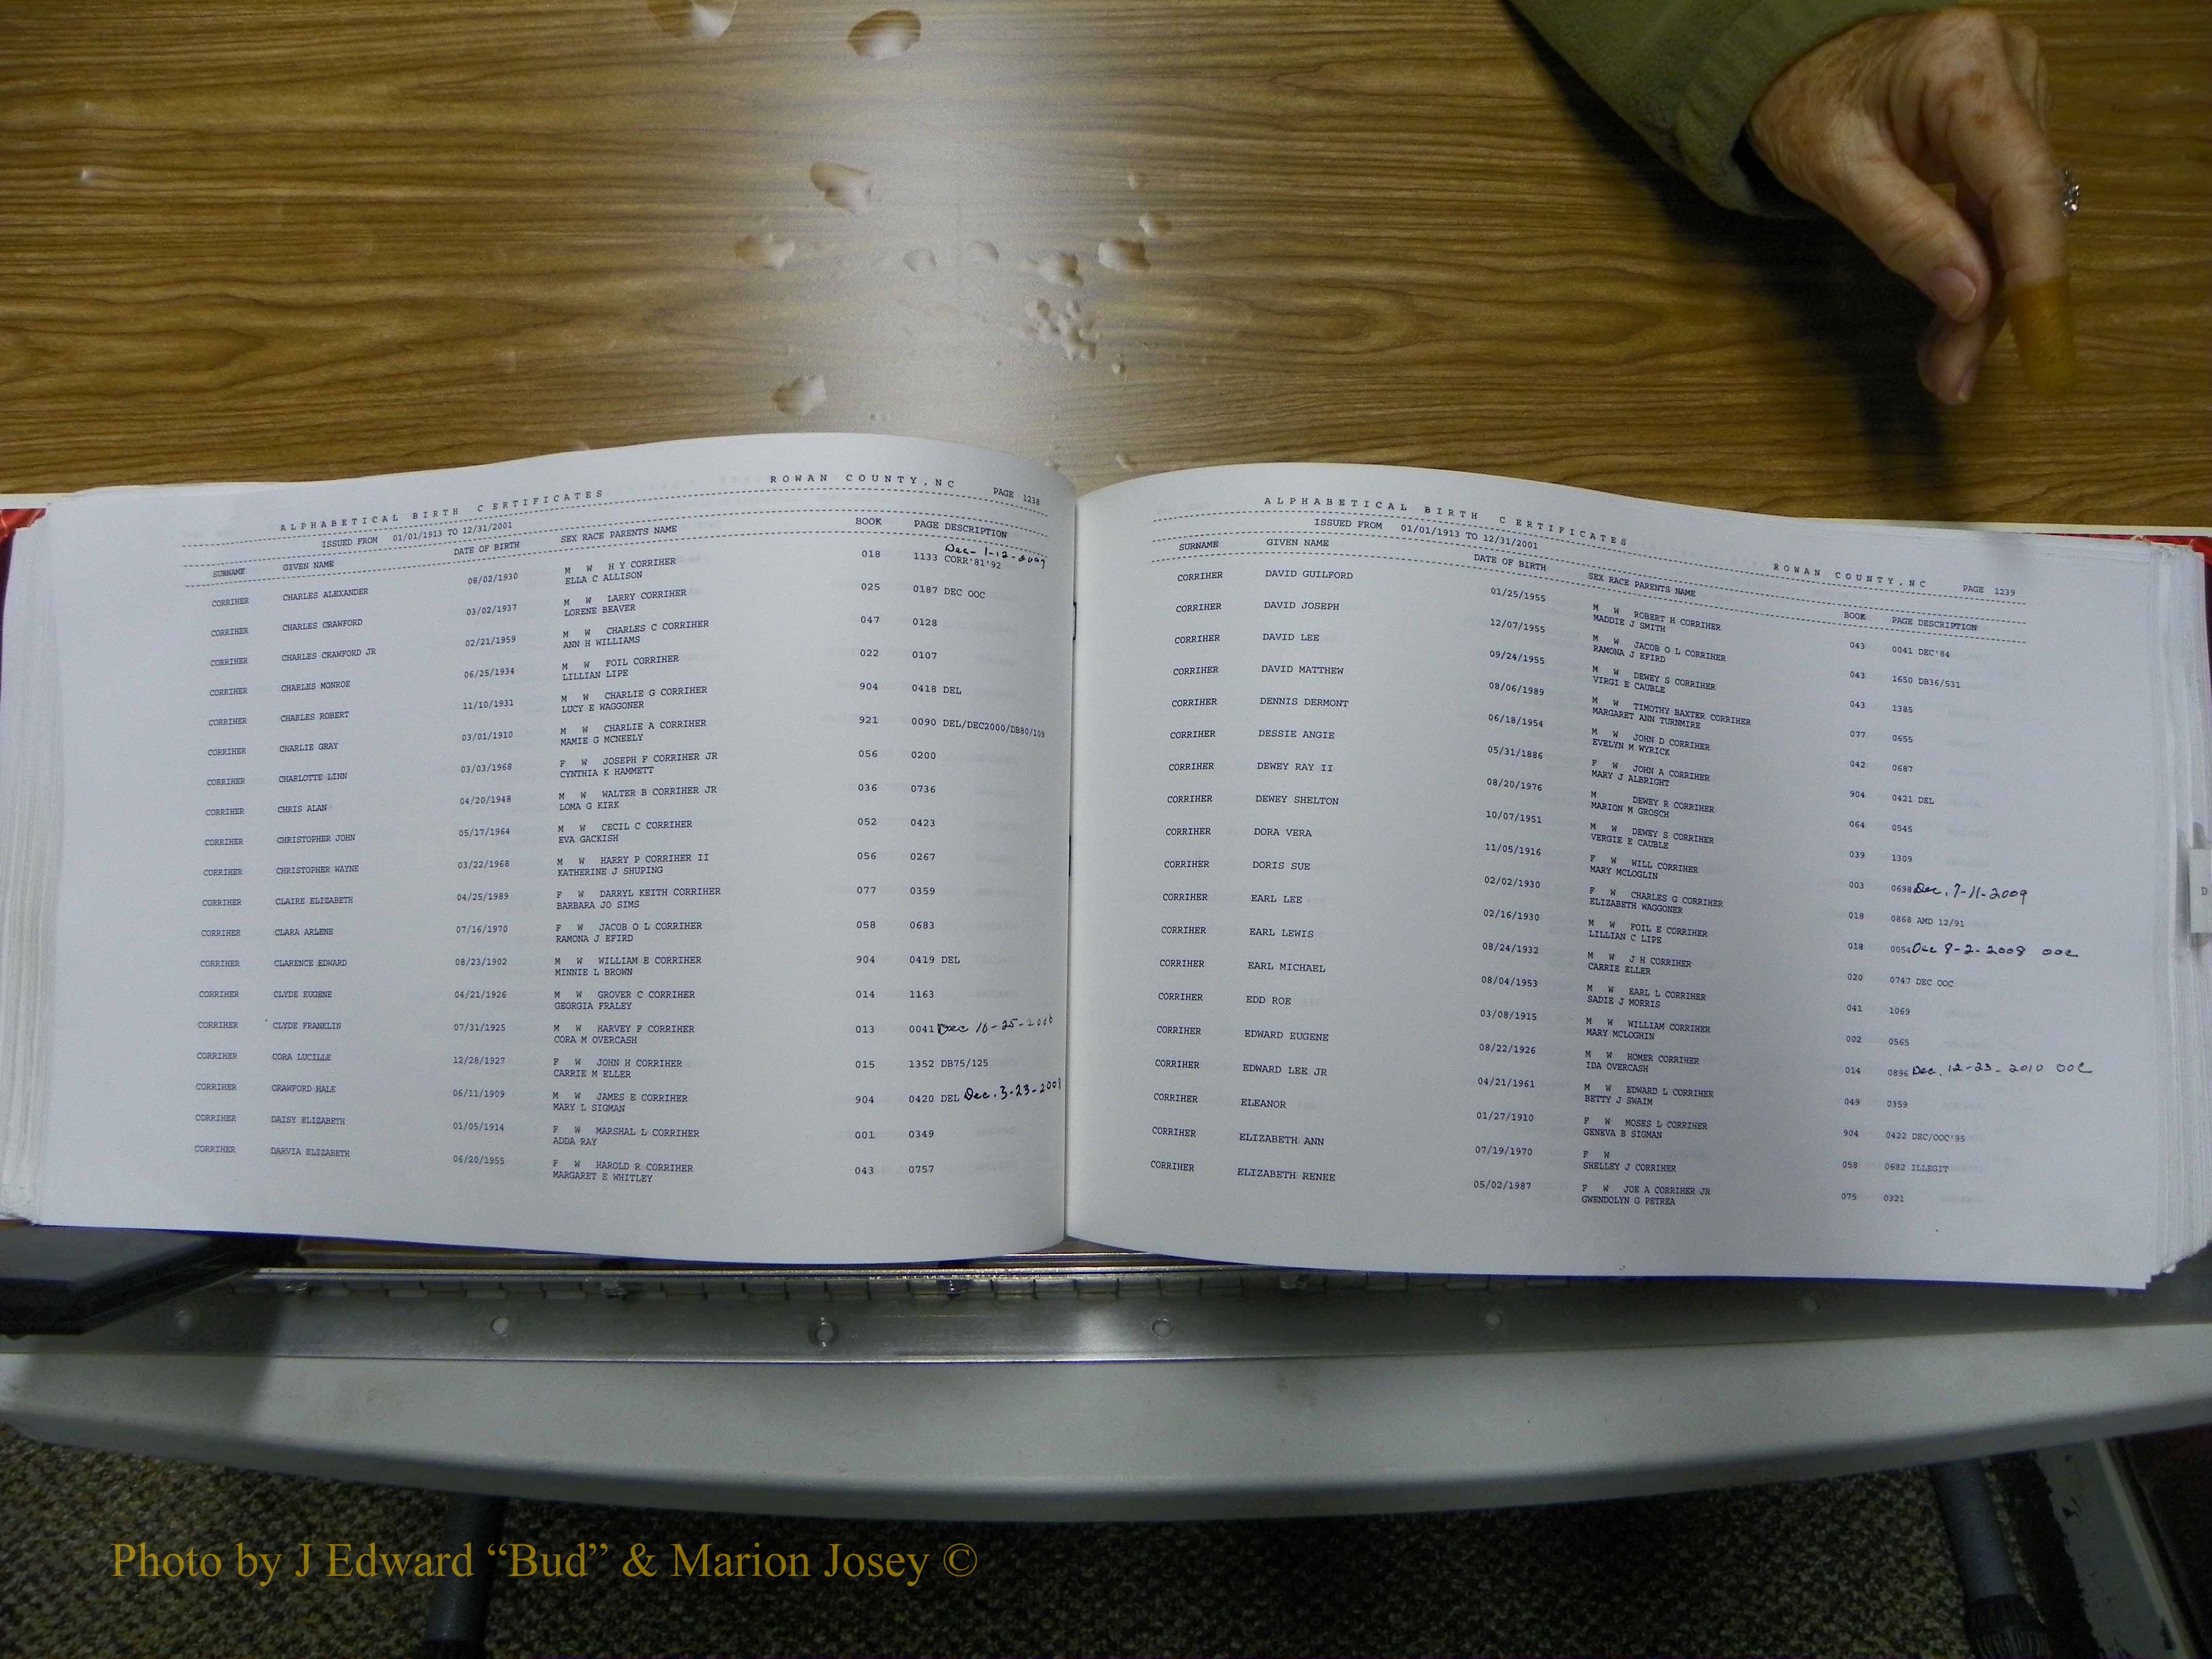 ALPHABETICAL BIRTH CERTIFICATES ROWAN COUNTY,NC PAGE 1238
ISSUED FROM 01/01/1913 TO 12/31/2001
SURNAME GIVEN NAME DATE OF BIRTH SEX RACE PARENTS NAME BOOK PAGE DESCRIPTION
Dec- 1-12-2007
CORRIHER CHARLES ALEXANDER 08/02/1930 M W H Y CORRIHER 018 1133 CORR'81'92
ELLA C ALLISON
CORRIHER CHARLES CRAWFORD 03/02/1937 M W LARRY CORRIHER 025 0187 DEC OOC
LORENE BEAVER
CORRIHER CHARLES CRAWFORD JR 02/21/1959 M W CHARLES C CORRIHER 047 0128
ANN H WILLIAMS
CORRIHER CHARLES MONROE 06/25/1934 M W FOIL CORRIHER 022 0107
LILLIAN LIPE
CORRIHER CHARLES ROBERT 11/10/1931 M W CHARLIE G CORRIHER 904 0418 DEL
LUCY E WAGGONER
CORRIHER CHARLIE GRAY 03/01/1910 M W CHARLIE A CORRIHER 921 0090 DEL/DEC2000/DB80/109
MAMIE G MCNEELY
CORRIHER CHARLOTTE LINN 03/03/1968 F W JOSEPH F CORRIHER JR 056 0200
CYNTHIA K HAMMETT
CORRIHER CHRIS ALAN 04/20/1948 M W WALTER B CORRIHER JR 036 0736
LOMA G KIRK
CORRIHER CHRISTOPHER JOHN 05/17/1964 M W CECIL C CORRIHER 052 0423
EVA GACKISH
CORRIHER CHRISTOPHER WAYNE 03/22/1968 M W HARRY P CORRIHER II 056 0267
KATHERINE J SHUPING
CORRIHER CLAIRE ELIZABETH 04/25/1989 F W DARRYL KEITH CORRIHER 077 0359
BARBARA JO SIMS
CORRIHER CLARA ARLENE 07/16/1970 F W JACOB O L CORRIHER 058 0683
RAMONA J EFIRD
CORRIHER CLARENCE EDWARD 08/23/1902 M W WILLIAM E CORRIHER 904 0419 DEL
MINNIE L BROWN
CORRIHER CLYDE EUGENE 04/21/1926 M W GROVER C CORRIHER 014 1163
GEORGIA FRALEY
CORRIHER CLYDE FRANKLIN 07/31/1925 M W HARVEY F CORRIHER 013 0041 Dec 10-25-2006
CORA M OVERCASH
CORRIHER CORA LUCILLE 12/28/1927 F W JOHN H CORRIHER 015 1352 DB75/125
CARRIE M ELLER
CORRIHER CRAWFORD HALE 06/11/1909 M W JAMES E CORRIHER 904 0420 DEL Dec. 3-23-2001
MARY L SIGMAN
CORRIHER DAISY ELIZABETH 01/05/1914 F W MARSHAL L CORRIHER 001 0349
ADDA RAY
CORRIHER DARVIA ELIZABETH 06/20/1955 F W HAROLD R CORRIHER 043 0757
MARGARET E WHITLEY
ALPHABETICAL BIRTH CERTIFICATES ROWAN COUNTY,NC PAGE 1239
ISSUED FROM 01/01/1913 TO 12/31/2001
SURNAME GIVEN NAME DATE OF BIRTH SEX RACE PARENTS NAME BOOK PAGE DESCRIPTION
CORRIHER DAVID GUILFORD 01/25/1955 M W ROBERT H CORRIHER 043 0041 DEC'84
MADDIE J SMITH
CORRIHER DAVID JOSEPH 12/07/1955 M W JACOB O L CORRIHER 043 1650 DB36/531
RAMONA J EFIRD
CORRIHER DAVID LEE 09/24/1955 M W DEWEY S CORRIHER 043 1385
VIRGI E CAUBLE
CORRIHER DAVID MATTHEW 08/06/1989 M W TIMOTHY BAXTER CORRIHER 077 0655
MARGARET ANN TURNMIRE
CORRIHER DENNIS DERMONT 06/18/1954 M W JOHN D CORRIHER 042 0687
EVELYN M WYRICK
CORRIHER DESSIE ANGIE 05/31/1886 F W JOHN A CORRIHER 904 0421 DEL
MARY J ALBRIGHT
CORRIHER DEWEY RAY II 08/20/1976 M DEWEY R CORRIHER 064 0545
MARION M GROSCH
CORRIHER DEWEY SHELTON 10/07/1951 M W DEWEY S CORRIHER 039 1309
VERGIE E CAUBLE
CORRIHER DORA VERA 11/05/1916 F W WILL CORRIHER 003 0698 Dec. 7-11-2009
MARY MCLOGLIN
CORRIHER DORIS SUE 02/02/1930 F W CHARLES G CORRIHER 018 0868 AMD 12/91
ELIZABETH WAGGONER
CORRIHER EARL LEE 02/16/1930 M W FOIL E CORRIHER 018 0054 Dec 8-2-2008 OOC
LILLIAN C LIPE
CORRIHER EARL LEWIS 08/24/1932 M W J H CORRIHER 020 0747 DEC OOC
CARRIE ELLER
CORRIHER EARL MICHAEL 08/04/1953 M W EARL L CORRIHER 041 1069
SADIE J MORRIS
CORRIHER EDD ROE 03/08/1915 M W WILLIAM CORRIHER 002 0565
MARY MCLOGHIN
CORRIHER EDWARD EUGENE 08/22/1926 M W HOMER CORRIHER 014 0896 Dec. 12-23-2010 OOC
IDA OVERCASH
CORRIHER EDWARD LEE JR 04/21/1961 M W EDWARD L CORRIHER 049 0359
BETTY J SWAIM
CORRIHER ELEANOR 01/27/1910 F W MOSES L CORRIHER 904 0422 DEC/OOC'95
GENEVA B SIGMAN
CORRIHER ELIZABETH ANN 07/19/1970 F W 058 0682 ILLEGIT
SHELLEY J CORRIHER
CORRIHER ELIZABETH RENEE 05/02/1987 F W JOE A CORRIHER JR 075 0321
GWENDOLYN G PETREA
D
Photo by J Edward “Bud” & Marion Josey ©